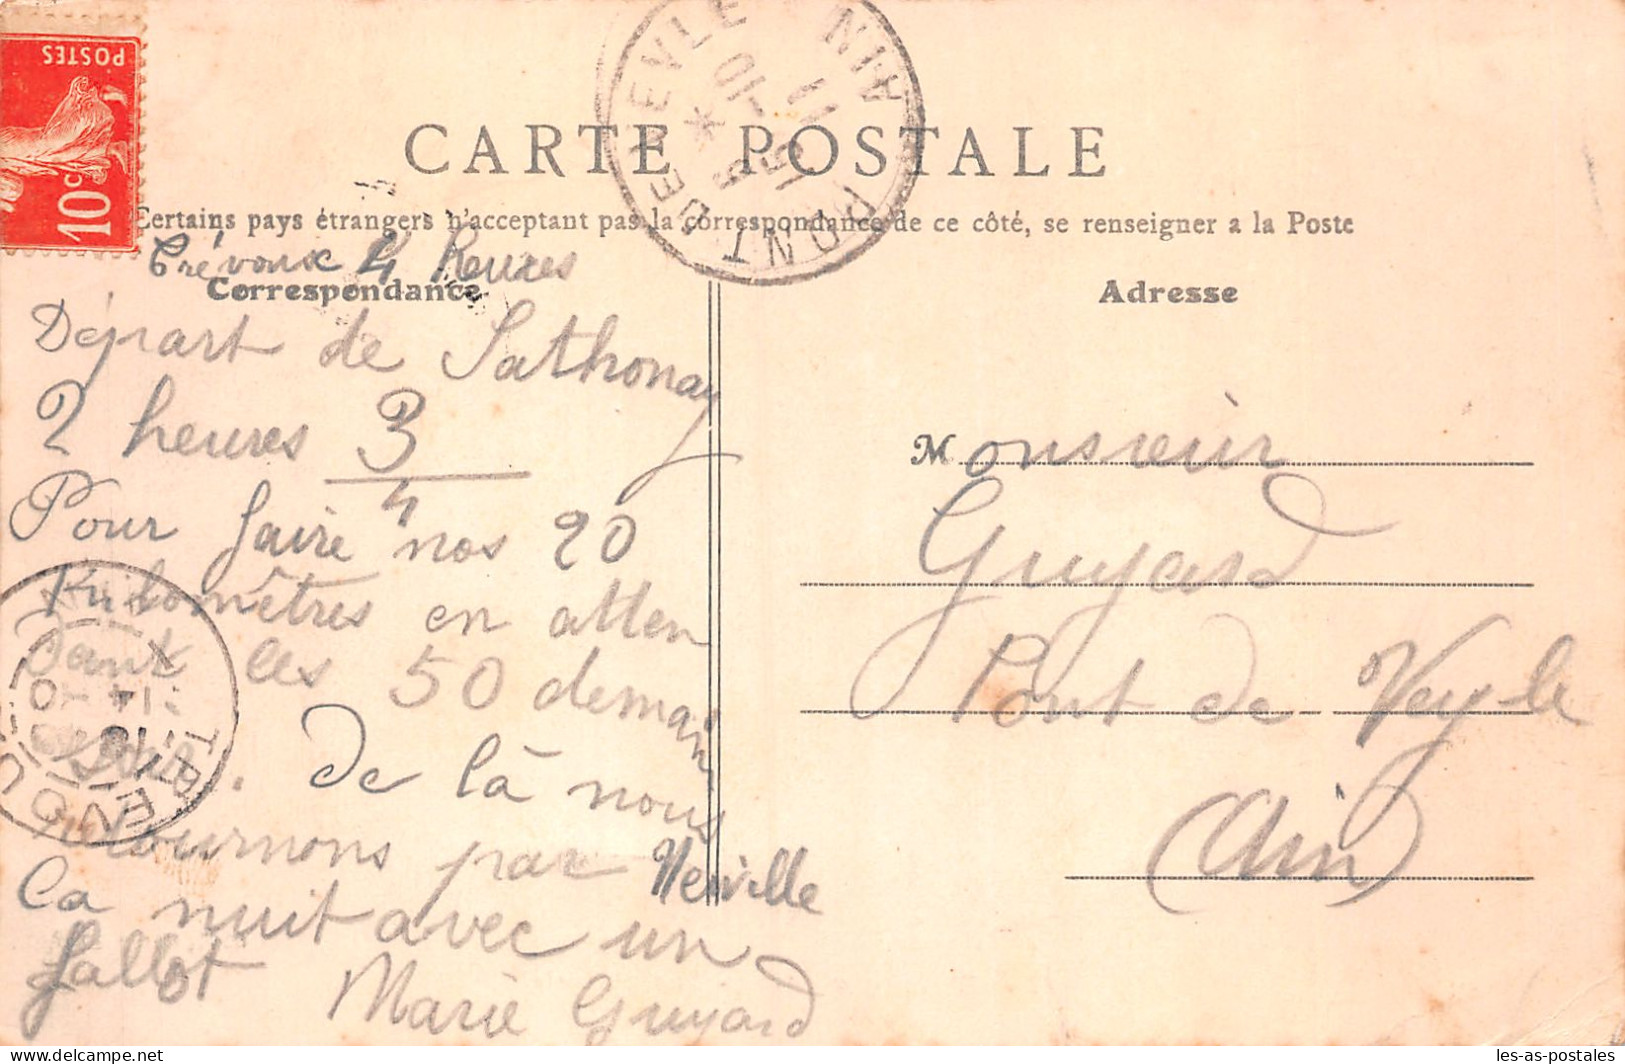 POSTES
10c
PONT DE VEYLE
AIN
5 * 10
15 11
CARTE POSTALE
Certains pays étrangers n'acceptant pas la correspondance de ce côté, se renseigner a la Poste
Trévoux 4 heures
Correspondance
Départ de Sathonay
2 heures 3/4
Pour faire nos 20
Kilomètres en atten
dant les 50 demain
soir. De là nous
retournons par Neuville
la nuit avec un
fallot Marie Guyard
TREVOUX
14
Adresse
Monsieur
Guyard
Pont de Veyle
(Ain)
les-as-postales